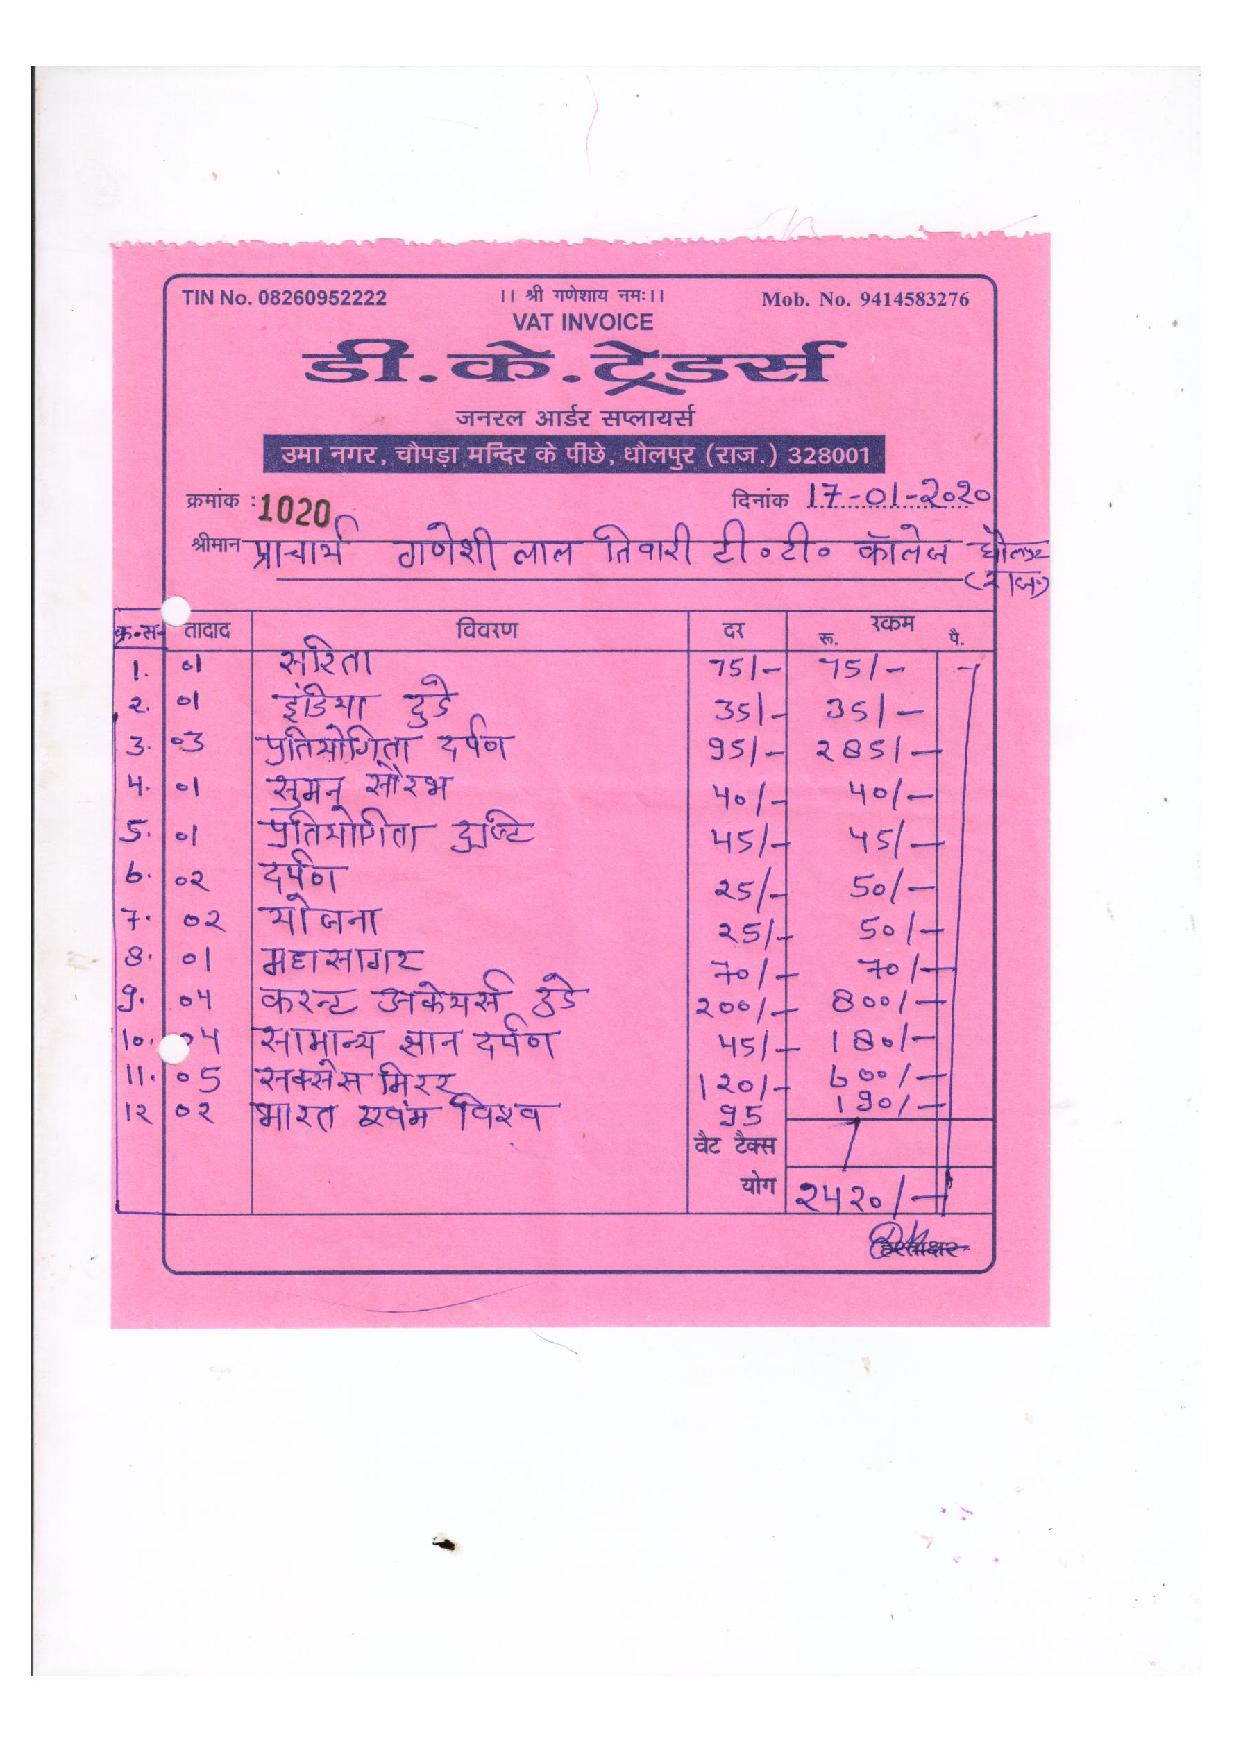 TIN No. 08260952222 ।। श्री गणेशाय नमः।। Mob. No. 9414583276
VAT INVOICE
डी.के.ट्रेडर्स
जनरल आर्डर सप्लायर्स
उमा नगर, चौपड़ा मन्दिर के पीछे, धौलपुर (राज.) 328001
क्रमांक : 1020 दिनांक 17-01-2020
श्रीमान प्राचार्य गणेशी लाल तिवारी टी॰टी॰ कॉलेज धौलपुर
(राज॰)
क्र॰स॰ तादाद विवरण दर रकम
रू. पै.
1. 01 सरिता 75/- 75/-
२. 01 इंडिया टुडे 35/- 35/-
3. 03 प्रतियोगिता दर्पण 95/- २85/-
4. 01 सुमन सौरभ 40/- 40/-
5. 01 प्रतियोगिता दृष्टि 45/- 45/-
6. 0२ दर्पण २5/- 50/-
7. 0२ योजना २5/- 50/-
8. 01 महासागर 70/- 70/-
9. 04 करन्ट अफेयर्स टुडे २00/- 800/-
10. 04 सामान्य ज्ञान दर्पण 45/- 180/-
11. 05 सक्सेस मिरर 1२0/- 600/-
1२ 0२ भारत एवंम विश्व 95 190/-
वैट टैक्स
योग २4२0/-
हस्ताक्षर